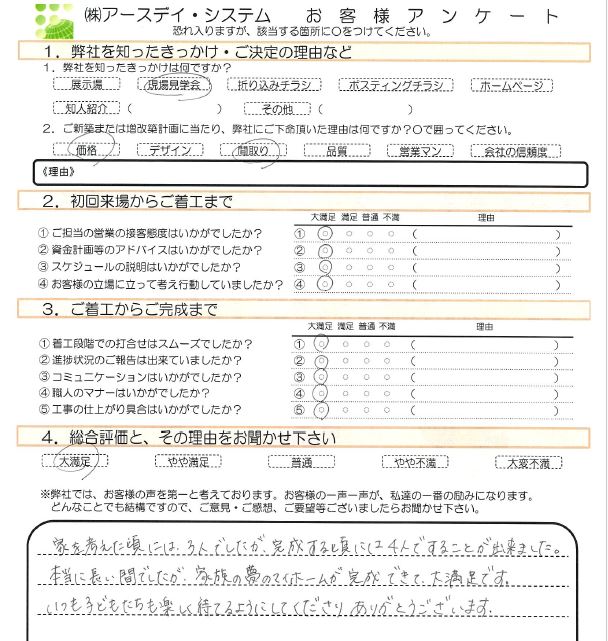 ㈱アースデイ・システム お客様アンケート
恐れ入りますが、該当する箇所に○をつけてください。
1．弊社を知ったきっかけ・ご決定の理由など
1．弊社を知ったきっかけは何ですか？
展示場 現場見学会 折り込みチラシ ポスティングチラシ ホームページ
知人紹介 （ ） その他 （ ）
2．ご新築または増改築計画に当たり、弊社にご下命頂いた理由は何ですか？○で囲ってください。
価格 デザイン 間取り 品質 営業マン 会社の信頼度
《理由》
2．初回来場からご着工まで
大満足 満足 普通 不満 理由
① ご担当の営業の接客態度はいかがでしたか？ ① ○ ○ ○ ○ （ ）
② 資金計画等のアドバイスはいかがでしたか？ ② ○ ○ ○ ○ （ ）
③ スケジュールの説明はいかがでしたか？ ③ ○ ○ ○ ○ （ ）
④ お客様の立場に立って考え行動していましたか？ ④ ○ ○ ○ ○ （ ）
3．ご着工からご完成まで
大満足 満足 普通 不満 理由
① 着工段階での打合せはスムーズでしたか？ ① ○ ○ ○ ○ （ ）
② 進捗状況のご報告は出来ていましたか？ ② ○ ○ ○ ○ （ ）
③ コミュニケーションはいかがでしたか？ ③ ○ ○ ○ ○ （ ）
④ 職人のマナーはいかがでしたか？ ④ ○ ○ ○ ○ （ ）
⑤ 工事の仕上がり具合はいかがでしたか？ ⑤ ○ ○ ○ ○ （ ）
4．総合評価と、その理由をお聞かせ下さい
大満足 やや満足 普通 やや不満 大変不満
※弊社では、お客様の声を第一と考えております。お客様の一声一声が、私達の一番の励みになります。
どんなことでも結構ですので、ご意見・ご感想、ご要望等ございましたらお聞かせ下さい。
家を考えた頃には、3人でしたが、完成する頃には4人ですることが出来ました。
本当に長い間でしたが、家族の夢のマイホームが完成できて、大満足です。
いつも子どもたちも楽しく待てるようにしてくださり、ありがとうございます。